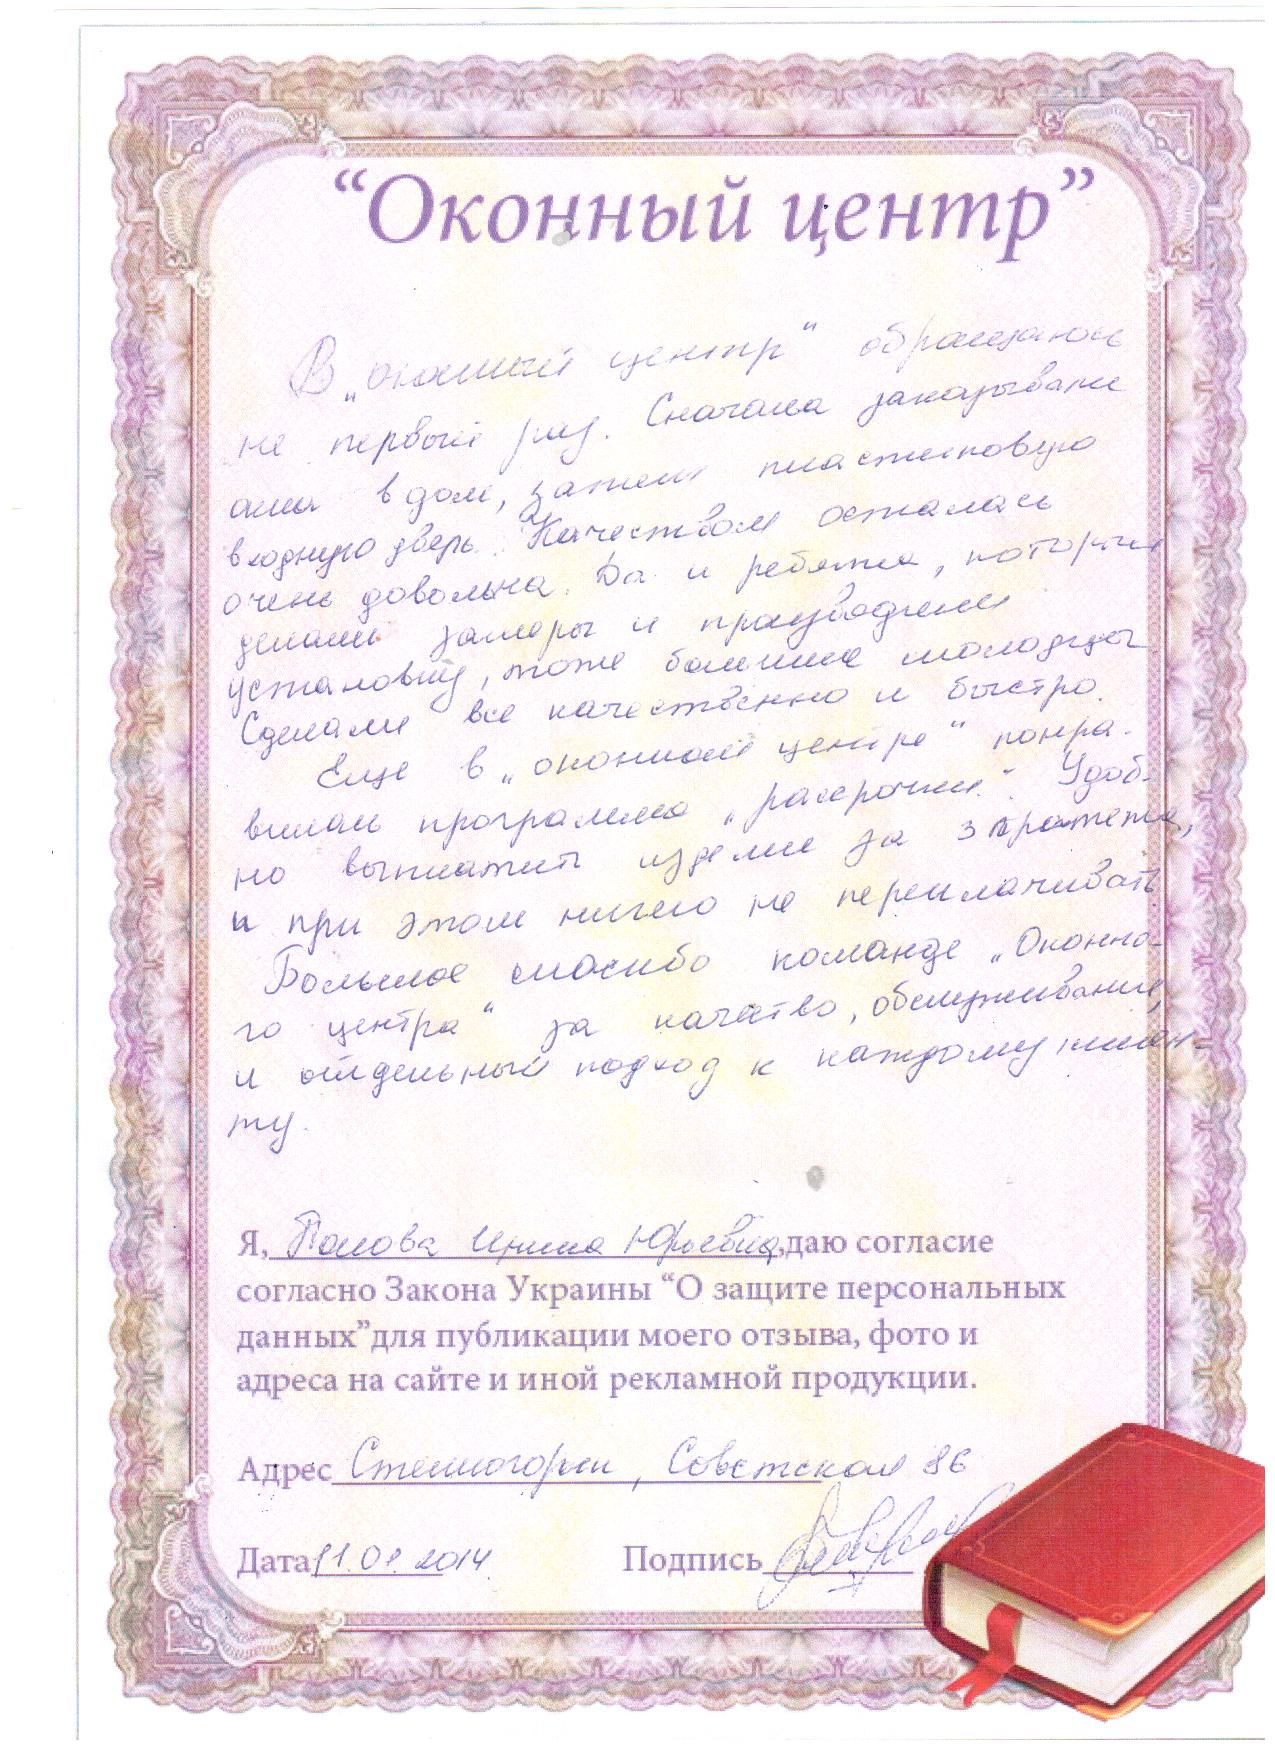 “Оконный центр”
В „оконный центр“ обращаюсь
не первый раз. Сначала заказывали
окна в дом, затем пластиковую
входную дверь. Качеством осталась
очень довольна. Да и ребята, которые
делали замеры и производили
установку, тоже большие молодцы.
Сделали все качественно и быстро.
Еще в „оконном центре“ понра-
вилась программа „рассрочки“. Удоб-
но выплатить изделие за 3 платежа,
и при этом ничего не переплачивать
Большое спасибо команде „Оконно-
го центра“ за качество, обслуживание,
и отдельный подход к каждому клиен-
ту.
Я, Попова Ирина Юрьевна,даю согласие
согласно Закона Украины “О защите персональных
данных”для публикации моего отзыва, фото и
адреса на сайте и иной рекламной продукции.
Адрес , Советская 86
Дата 2014 Подпись